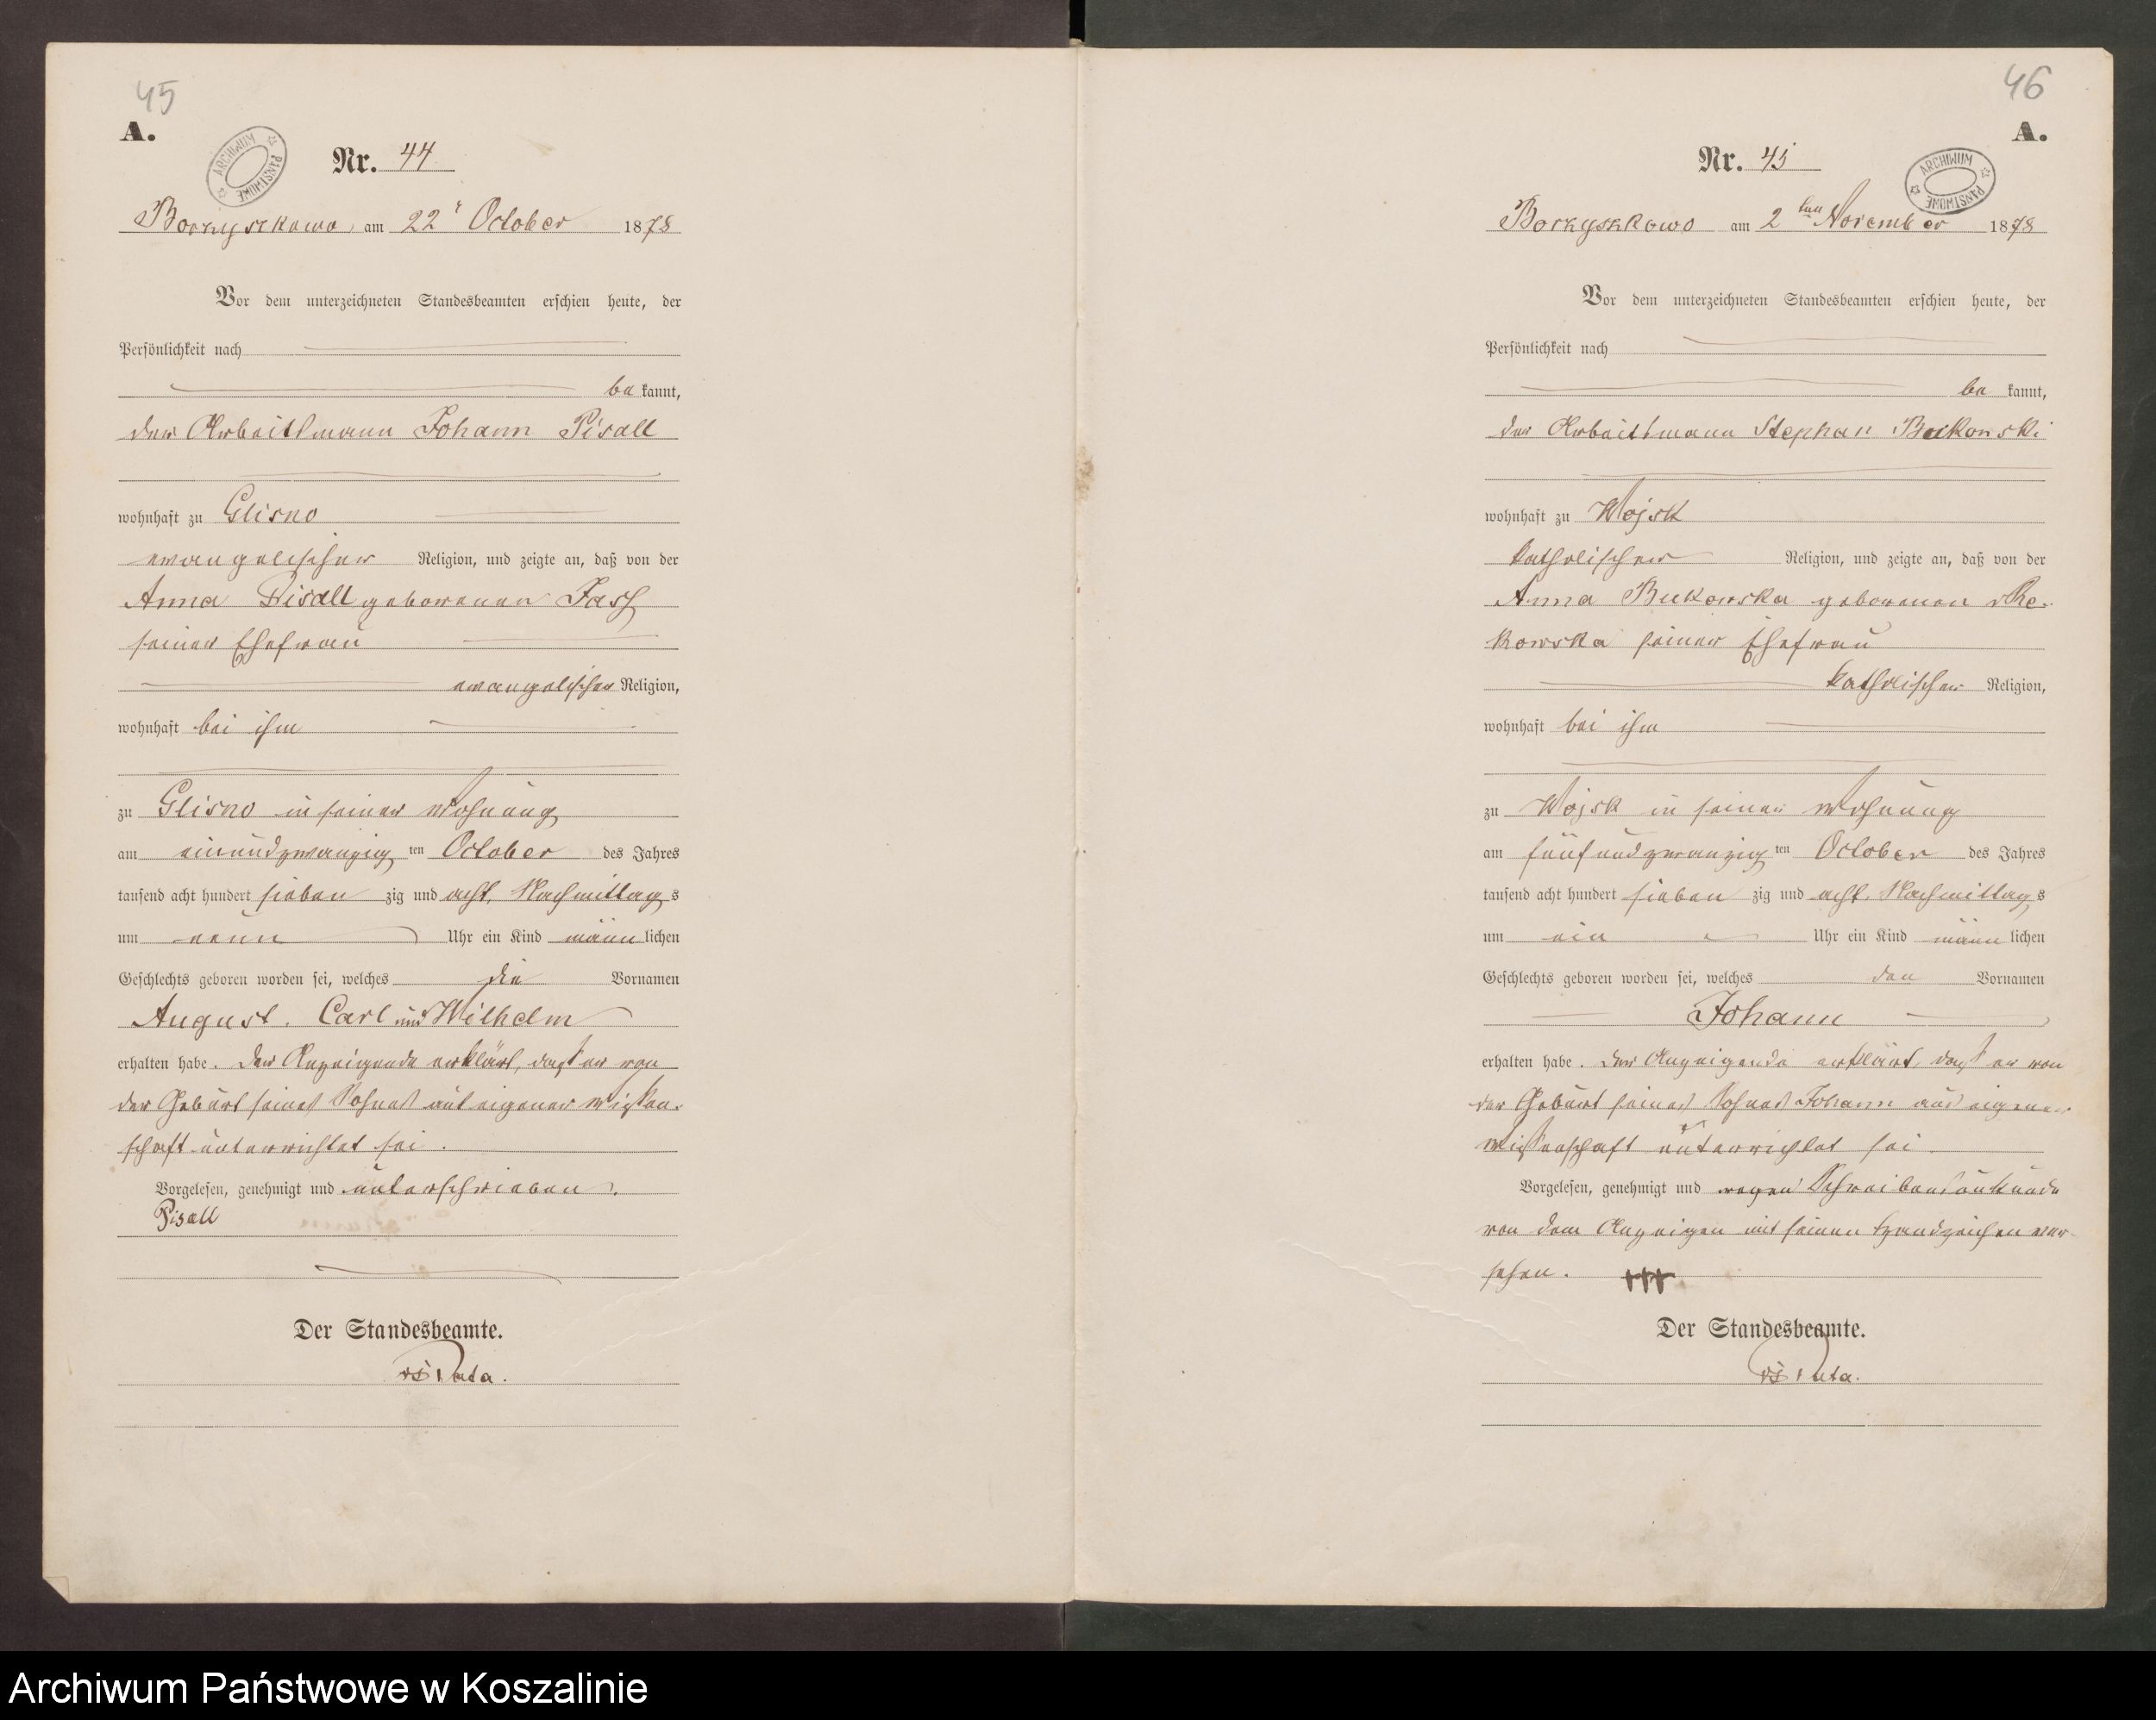 45
A.
ARCHIWUM PAŃSTWOWE
Nr. 44
Borzyszkowo, am 22t October 1878
Vor dem unterzeichneten Standesbeamten erschien heute, der
Persönlichkeit nach
be kannt,
der Arbeitsmann Johann Pisall
wohnhaft zu Glisno
evangelischer Religion, und zeigte an, daß von der
Anna Pisall geborenen Jasch
seiner Ehefrau
evangelischer Religion,
wohnhaft bei ihm
zu Glisno in seiner Wohnung
am einundzwanzig ten October des Jahres
tausend acht hundert sieben zig und acht, Nachmittag s
um neun Uhr ein Kind männ lichen
Geschlechts geboren worden sei, welches die Vornamen
August. Carl und Wilhelm
erhalten habe. Der Anzeigende erklärt, dass er von
der Geburt seines Sohnes aus eigener Wissen-
schaft unterrichtet sei.
Vorgelesen, genehmigt und unterschrieben.
Pisall
Der Standesbeamte.
46
A.
ARCHIWUM PAŃSTWOWE
Nr. 45
Borzyszkowo am 2ten November 1878
Vor dem unterzeichneten Standesbeamten erschien heute, der
Persönlichkeit nach
be kannt,
der Arbeitsmann Stephan Bukowski
wohnhaft zu Wojsk
katholischer Religion, und zeigte an, daß von der
Anna Bukowska geborenen
seiner Ehefrau
katholischer Religion,
wohnhaft bei ihm
zu Wojsk in seiner Wohnung
am fünfundzwanzig ten October des Jahres
tausend acht hundert sieben zig und acht, Nachmittag s
um ein Uhr ein Kind männ lichen
Geschlechts geboren worden sei, welches den Vornamen
Johann
erhalten habe. Der Anzeigende erklärt, dass er von
der Geburt seines Sohnes Johann aus eigener
Wissenschaft unterrichtet sei.
Vorgelesen, genehmigt und wegen Schreibensunkunde
von dem Anzeigen mit seinen Handzeichen ver-
sehen. +++
Der Standesbeamte.
Archiwum Państwowe w Koszalinie